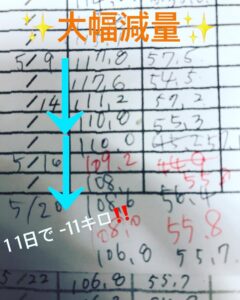 ✨大幅減量✨
5/9 117.8 57.5
/ 117.6 54.5
/14 111.2 57.2
/ 110.8 55.3
/ 110.0 45.2 57.1
5/16 109.2 44.9
/ 108. 55.
5/20 108.6 56.4
11日で -11キロ‼️
108.0 55.8
106.8 55.7.
5/22 106.8 55.7